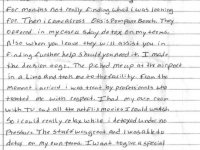 For months not really finding what I was looking
for. Then I came across Oasis Pompano Beach. They
offered in my case a 5 day detox on my terms.
Also when you leave they will assist you in
finding further help should you need it. I made
the decision to go. They picked me up at the airport
in a Limo and took me to the facility. From the
moment I arrived I was treated by professionals who
treated me with respect. I had my own room
with TV and all the netflix movies I could watch
so I could really relax while I detoxed under no
pressure. The staff was great and I was able to
detox on my own terms. I want to give a special